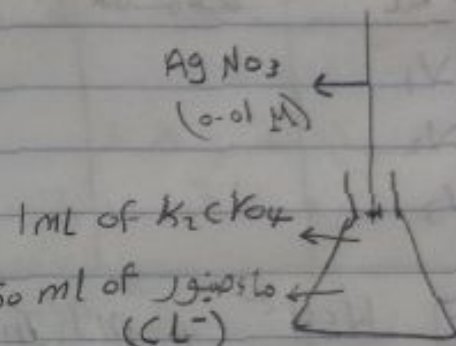 Ag NO3
(0.01 M)
1ml of K2CrO4
50 ml of ماء صنبور
(CL-)